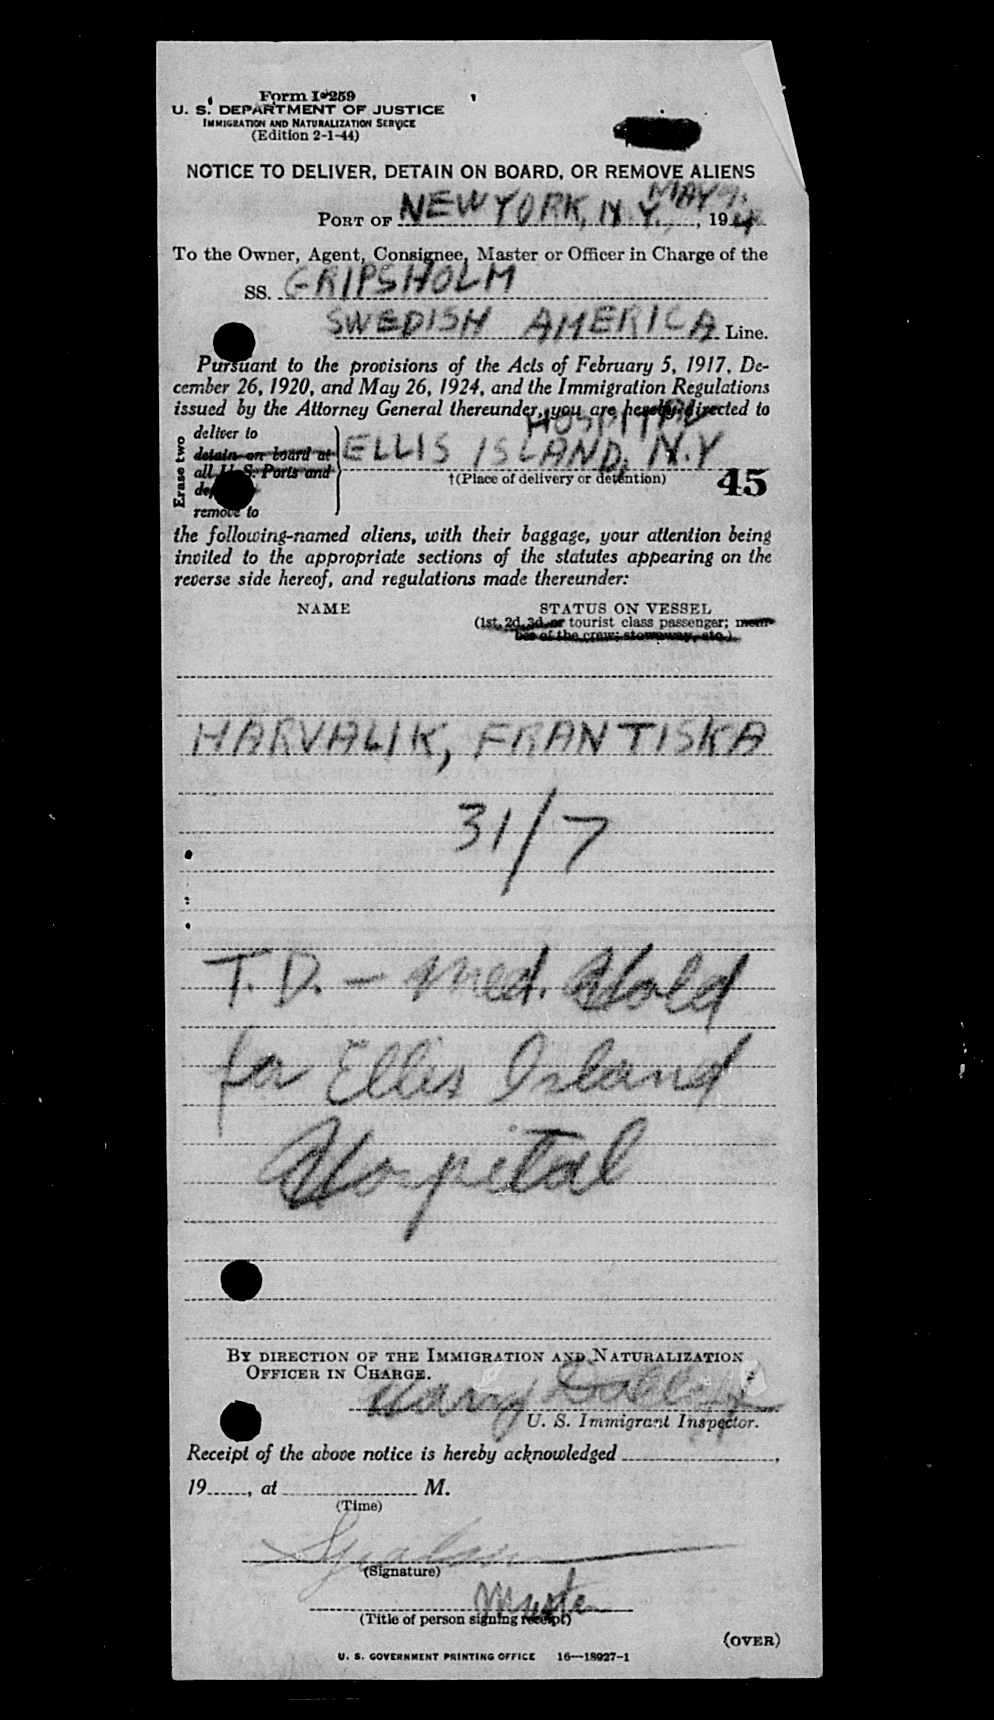 Form I-259
U. S. DEPARTMENT OF JUSTICE
IMMIGRATION AND NATURALIZATION SERVICE
(Edition 2-1-44)
NOTICE TO DELIVER, DETAIN ON BOARD, OR REMOVE ALIENS
PORT OF NEW YORK, N.Y., MAY 9, 194
To the Owner, Agent, Consignee, Master or Officer in Charge of the
SS. GRIPSHOLM
SWEDISH AMERICA Line.
Pursuant to the provisions of the Acts of February 5, 1917, De-
cember 26, 1920, and May 26, 1924, and the Immigration Regulations
issued by the Attorney General thereunder, you are hereby directed to
HOSPITAL
Erase two
deliver to
detain on board at
all U. S. Ports and
remove to
ELLIS ISLAND, N.Y
†(Place of delivery or detention)
45
the following-named aliens, with their baggage, your attention being
invited to the appropriate sections of the statutes appearing on the
reverse side hereof, and regulations made thereunder:
NAME STATUS ON VESSEL
(1st, 2d, 3d, or tourist class passenger; mem-
ber of the crew; stowaway, etc.)
HARVALIK, FRANTISKA
31/7
T.D. - Med. Hold
for Ellis Island
Hospital
BY DIRECTION OF THE IMMIGRATION AND NATURALIZATION
OFFICER IN CHARGE.
Harry
U. S. Immigrant Inspector.
Receipt of the above notice is hereby acknowledged ,
19 , at M.
(Time)
(Signature)
Master
(Title of person signing receipt)
(OVER)
U. S. GOVERNMENT PRINTING OFFICE 16—18927-1